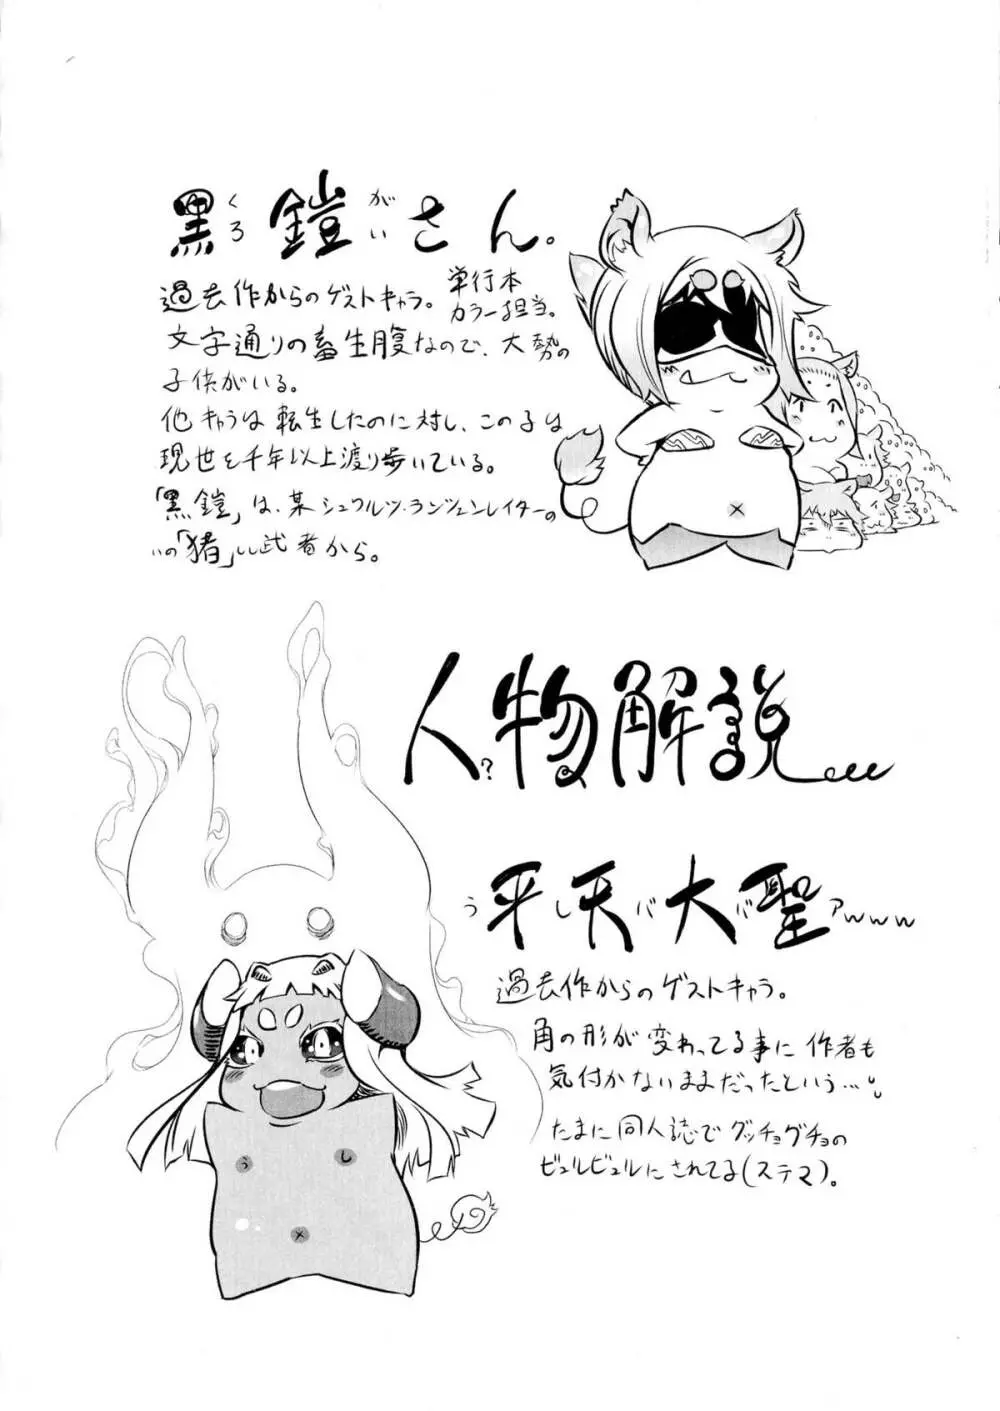 黒鎧さん。
くろがい
過去作からのゲストキャラ。単行本カラー担当。
文字通りの畜生腹なので、大勢の
子供がいる。
他キャラは転生したのに対し、この子は
現世を千年以上渡り歩いている。
「黒鎧」は、某シュワルツ・ランツェンレイターの
いの「猪」しし武者から。
人?物解説
平天大聖
うしバババアwww
過去作からのゲストキャラ。
角の形が変わってる事に作者も
気付かないままだったという…。
たまに同人誌でグッチョグチョの
ビュルビュルにされてる(ステマ)。
う
し